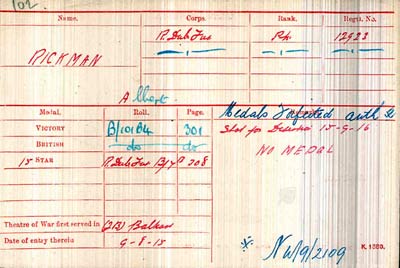 102.
Name. Corps. Rank. Regtl. No.
PICKMAN R. Dub Fus Pte 12923
Albert.
Medal. Roll. Page. Medals Forfeited auth
VICTORY B/101B4 301 Shot for Desertion 15-9-16
BRITISH do do NO MEDAL
15 STAR R. Dub Fus B/7 P 208
Theatre of War first served in (2B) Balkan
Date of entry therein 9-8-15
NW/9/2109
K. 1380.